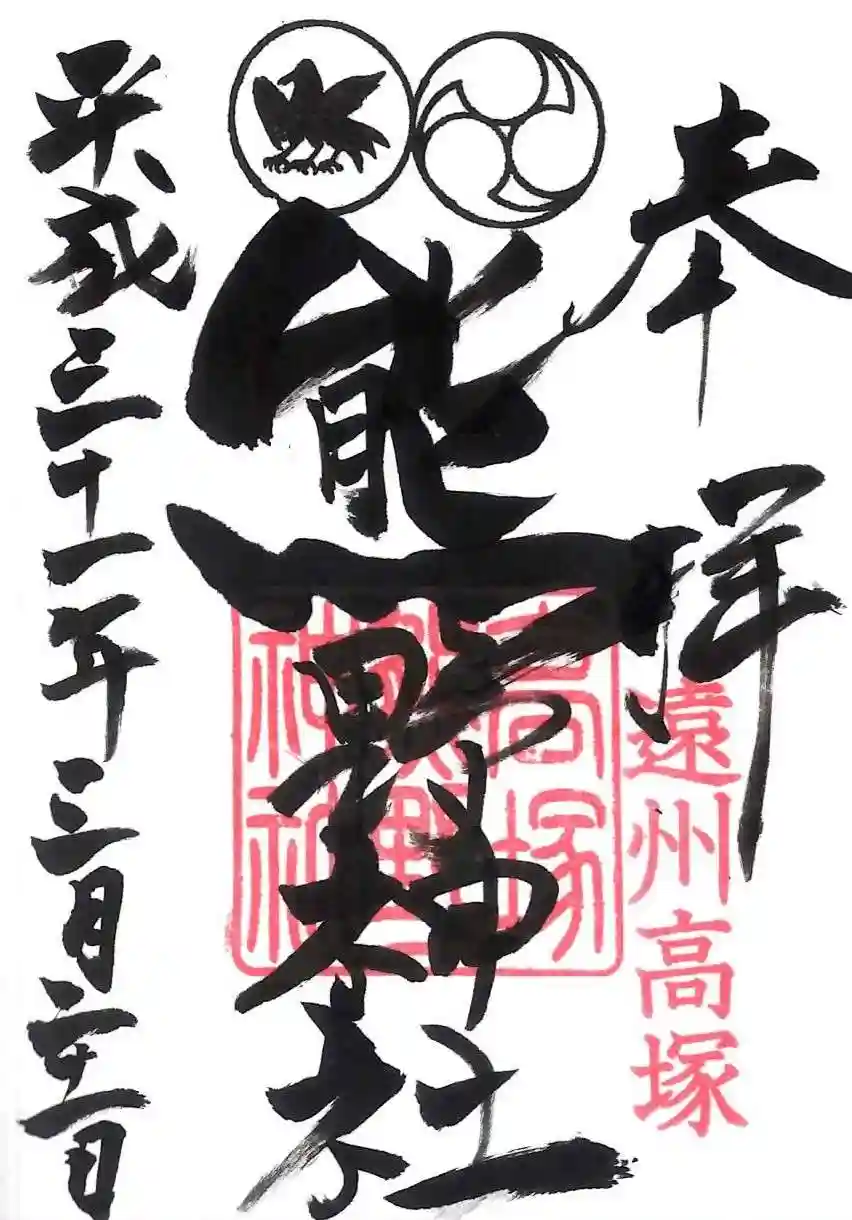 奉拝
遠州高塚
熊野神社
高塚
熊野
神社
平成三十一年三月二十一日